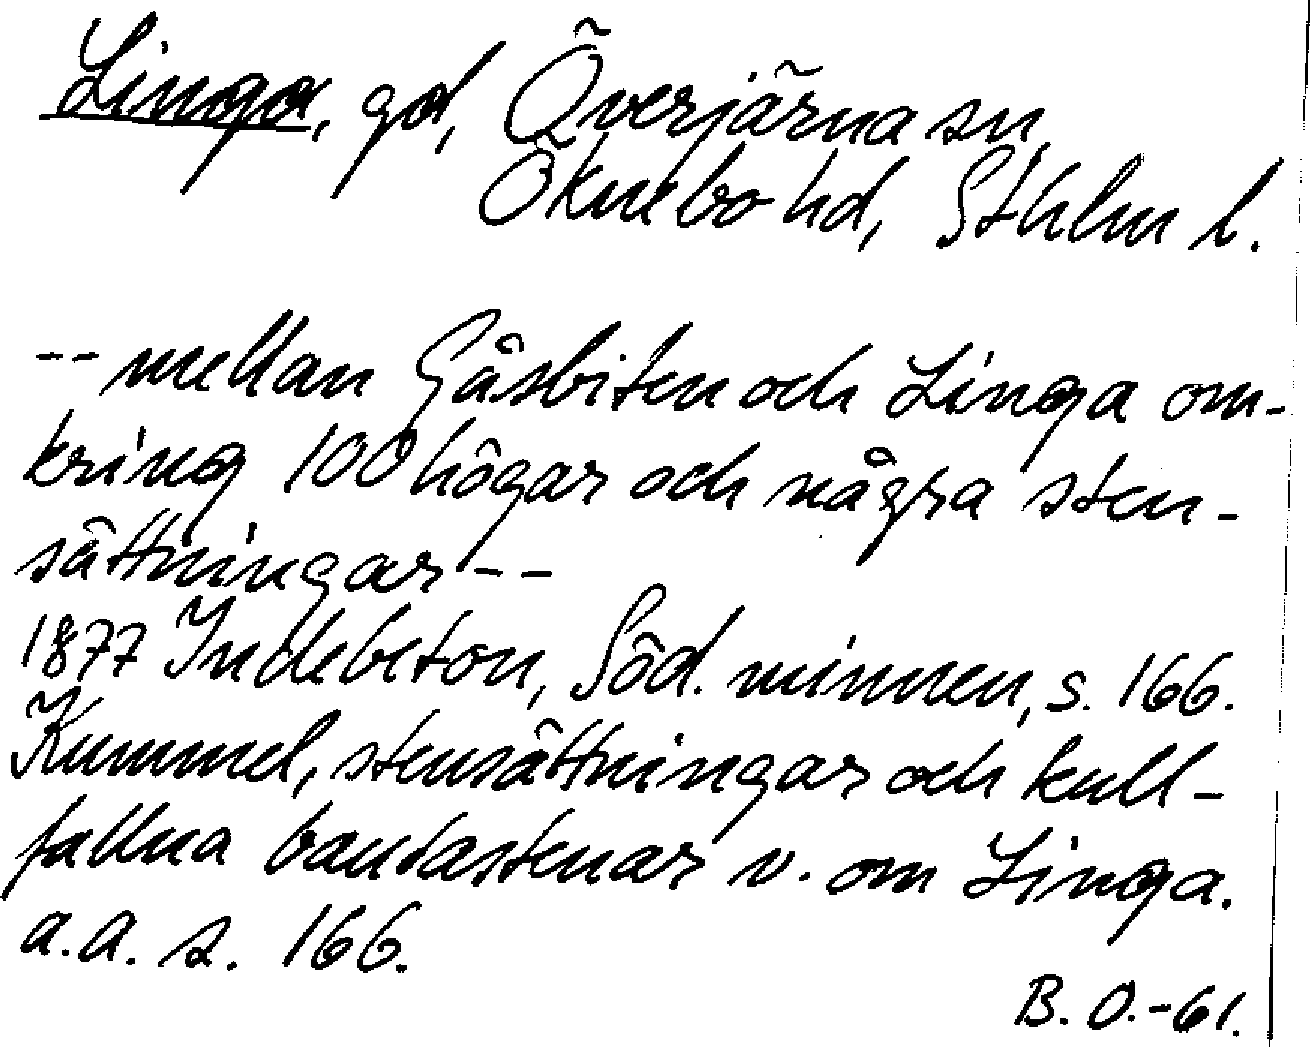 Linga, gd, Överjärna sn,
Öknebo hd, Sthlm l.
-- mellan Gåsbiten och Linga om-
kring 100 högar och några sten-
sättningar --
1877 Indebetou, Söd. minnen, s. 166.
Kummel, stensättningar och kull-
fallna bautastenar v. om Linga.
a.a. s. 166.
B. O. -61.